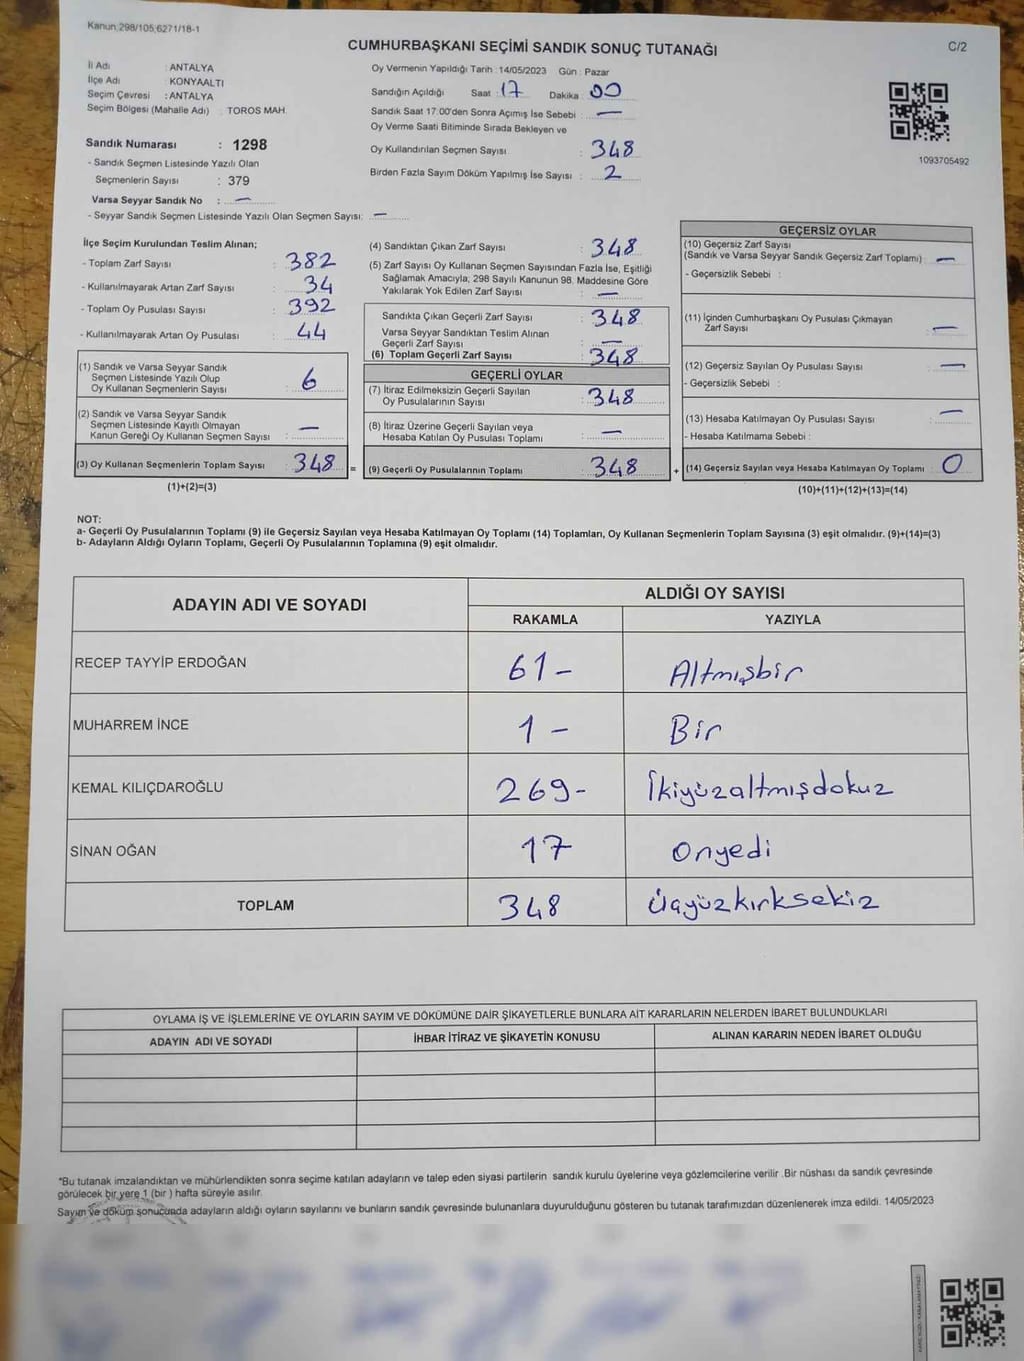 Kanun:298/105;6271/18-1
CUMHURBAŞKANI SEÇİMİ SANDIK SONUÇ TUTANAĞI
C/2
İl Adı : ANTALYA
İlçe Adı : KONYAALTI
Seçim Çevresi : ANTALYA
Seçim Bölgesi (Mahalle Adı) : TOROS MAH.
Oy Vermenin Yapıldığı Tarih : 14/05/2023 Gün : Pazar
Sandığın Açıldığı Saat : 17 Dakika : 00
Sandık Saat 17:00'den Sonra Açımış İse Sebebi : —
Oy Verme Saati Bitiminde Sırada Bekleyen ve
Oy Kullandırılan Seçmen Sayısı : 348
Birden Fazla Sayım Döküm Yapılmış İse Sayısı : 2
1093705492
Sandık Numarası : 1298
- Sandık Seçmen Listesinde Yazılı Olan
Seçmenlerin Sayısı : 379
Varsa Seyyar Sandık No : —
- Seyyar Sandık Seçmen Listesinde Yazılı Olan Seçmen Sayısı: —
İlçe Seçim Kurulundan Teslim Alınan;
- Toplam Zarf Sayısı : 382
- Kullanılmayarak Artan Zarf Sayısı : 34
- Toplam Oy Pusulası Sayısı : 392
- Kullanılmayarak Artan Oy Pusulası : 44
(1) Sandık ve Varsa Seyyar Sandık
Seçmen Listesinde Yazılı Olup
Oy Kullanan Seçmenlerin Sayısı : 6
(2) Sandık ve Varsa Seyyar Sandık
Seçmen Listesinde Kayıtlı Olmayan
Kanun Gereği Oy Kullanan Seçmen Sayısı : —
(3) Oy Kullanan Seçmenlerin Toplam Sayısı : 348 =
(1)+(2)=(3)
(4) Sandıktan Çıkan Zarf Sayısı : 348
(5) Zarf Sayısı Oy Kullanan Seçmen Sayısından Fazla İse, Eşitliği
Sağlamak Amacıyla, 298 Sayılı Kanunun 98. Maddesine Göre
Yakılarak Yok Edilen Zarf Sayısı : —
Sandıkta Çıkan Geçerli Zarf Sayısı : 348
Varsa Seyyar Sandıktan Teslim Alınan
Geçerli Zarf Sayısı : —
(6) Toplam Geçerli Zarf Sayısı : 348
GEÇERLİ OYLAR
(7) İtiraz Edilmeksizin Geçerli Sayılan
Oy Pusulalarının Sayısı : 348
(8) İtiraz Üzerine Geçerli Sayılan veya
Hesaba Katılan Oy Pusulası Toplamı : —
(9) Geçerli Oy Pusulalarının Toplamı : 348 +
GEÇERSİZ OYLAR
(10) Geçersiz Zarf Sayısı
(Sandık ve Varsa Seyyar Sandık Geçersiz Zarf Toplamı) : —
- Geçersizlik Sebebi :
(11) İçinden Cumhurbaşkanı Oy Pusulası Çıkmayan
Zarf Sayısı : —
(12) Geçersiz Sayılan Oy Pusulası Sayısı : —
- Geçersizlik Sebebi :
(13) Hesaba Katılmayan Oy Pusulası Sayısı : —
- Hesaba Katılmama Sebebi :
(14) Geçersiz Sayılan veya Hesaba Katılmayan Oy Toplamı 0
(10)+(11)+(12)+(13)=(14)
NOT:
a- Geçerli Oy Pusulalarının Toplamı (9) ile Geçersiz Sayılan veya Hesaba Katılmayan Oy Toplamı (14) Toplamları, Oy Kullanan Seçmenlerin Toplam Sayısına (3) eşit olmalıdır. (9)+(14)=(3)
b- Adayların Aldığı Oyların Toplamı, Geçerli Oy Pusulalarının Toplamına (9) eşit olmalıdır.
ADAYIN ADI VE SOYADI
ALDIĞI OY SAYISI
RAKAMLA YAZIYLA
RECEP TAYYİP ERDOĞAN 61- Altmışbir
MUHARREM İNCE 1- Bir
KEMAL KILIÇDAROĞLU 269- İkiyüzaltmışdokuz
SİNAN OĞAN 17 Onyedi
TOPLAM 348 Üçyüzkırksekiz
OYLAMA İŞ VE İŞLEMLERİNE VE OYLARIN SAYIM VE DÖKÜMÜNE DAİR ŞİKAYETLERLE BUNLARA AİT KARARLARIN NELERDEN İBARET BULUNDUKLARI
ADAYIN ADI VE SOYADI İHBAR İTİRAZ VE ŞİKAYETİN KONUSU ALINAN KARARIN NEDEN İBARET OLDUĞU
*Bu tutanak imzalandıktan ve mühürlendikten sonra seçime katılan adayların ve talep eden siyasi partilerin sandık kurulu üyelerine veya gözlemcilerine verilir .Bir nüshası da sandık çevresinde
görülecek bir yere 1 (bir ) hafta süreyle asılır.
Sayım ve döküm sonucunda adayların aldığı oyların sayılarını ve bunların sandık çevresinde bulunanlara duyurulduğunu gösteren bu tutanak tarafımızdan düzenlenerek imza edildi. 14/05/2023